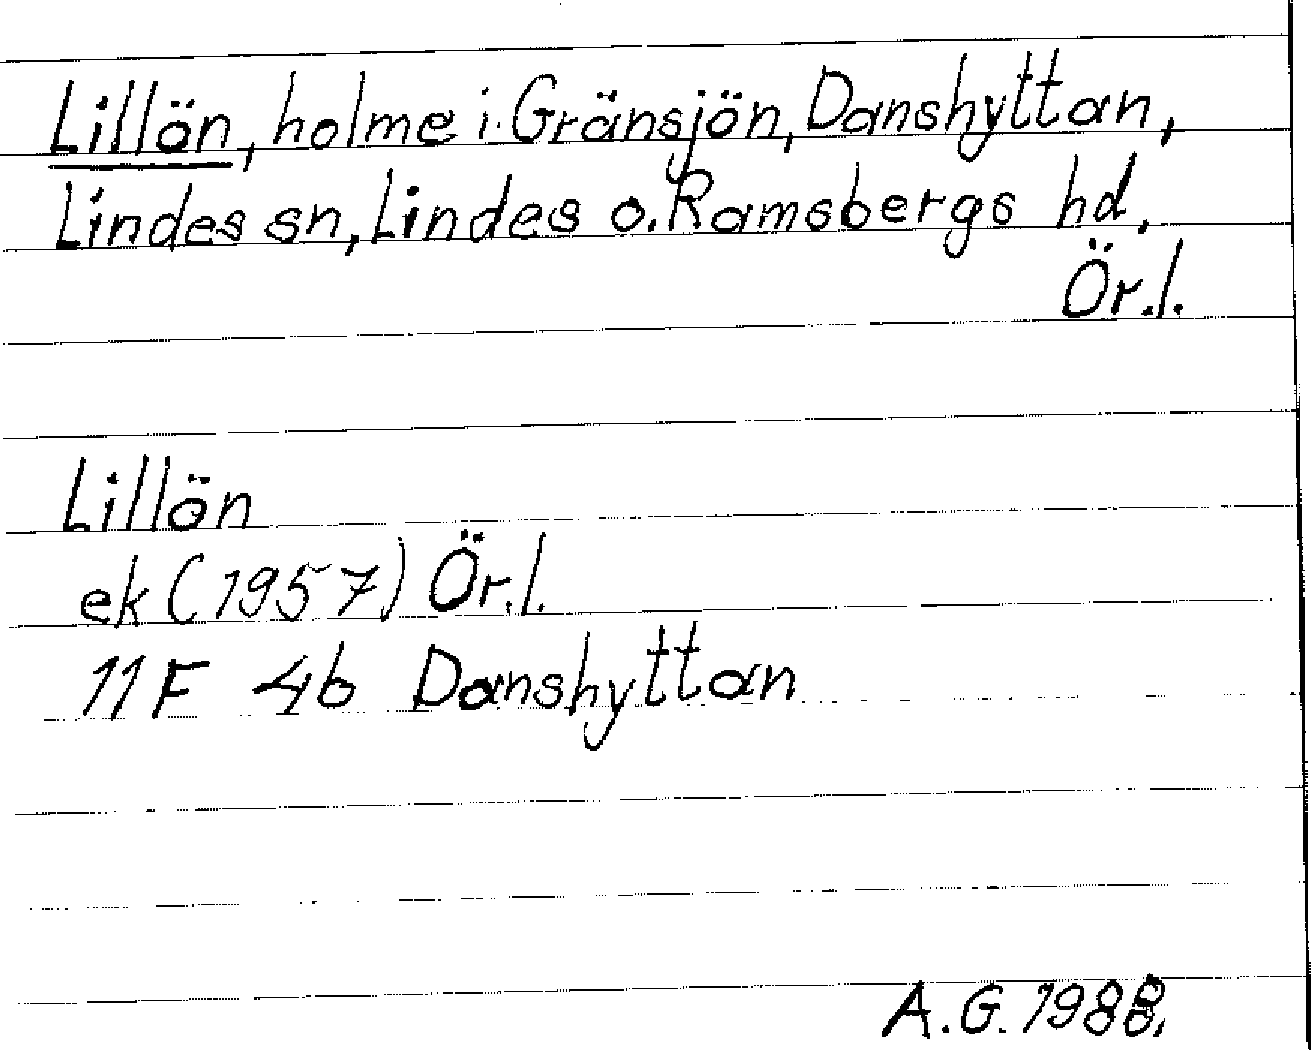 Lillön, holme i Gränsjön, Danshyttan,
Lindes sn, Lindes o. Ramsbergs hd,
Ör.l.
Lillön
ek (1957) Ör.l.
11F 4b Danshyttan
A.G. 1988.